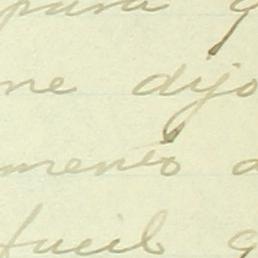 para q
me dijo
mento a
fucil q